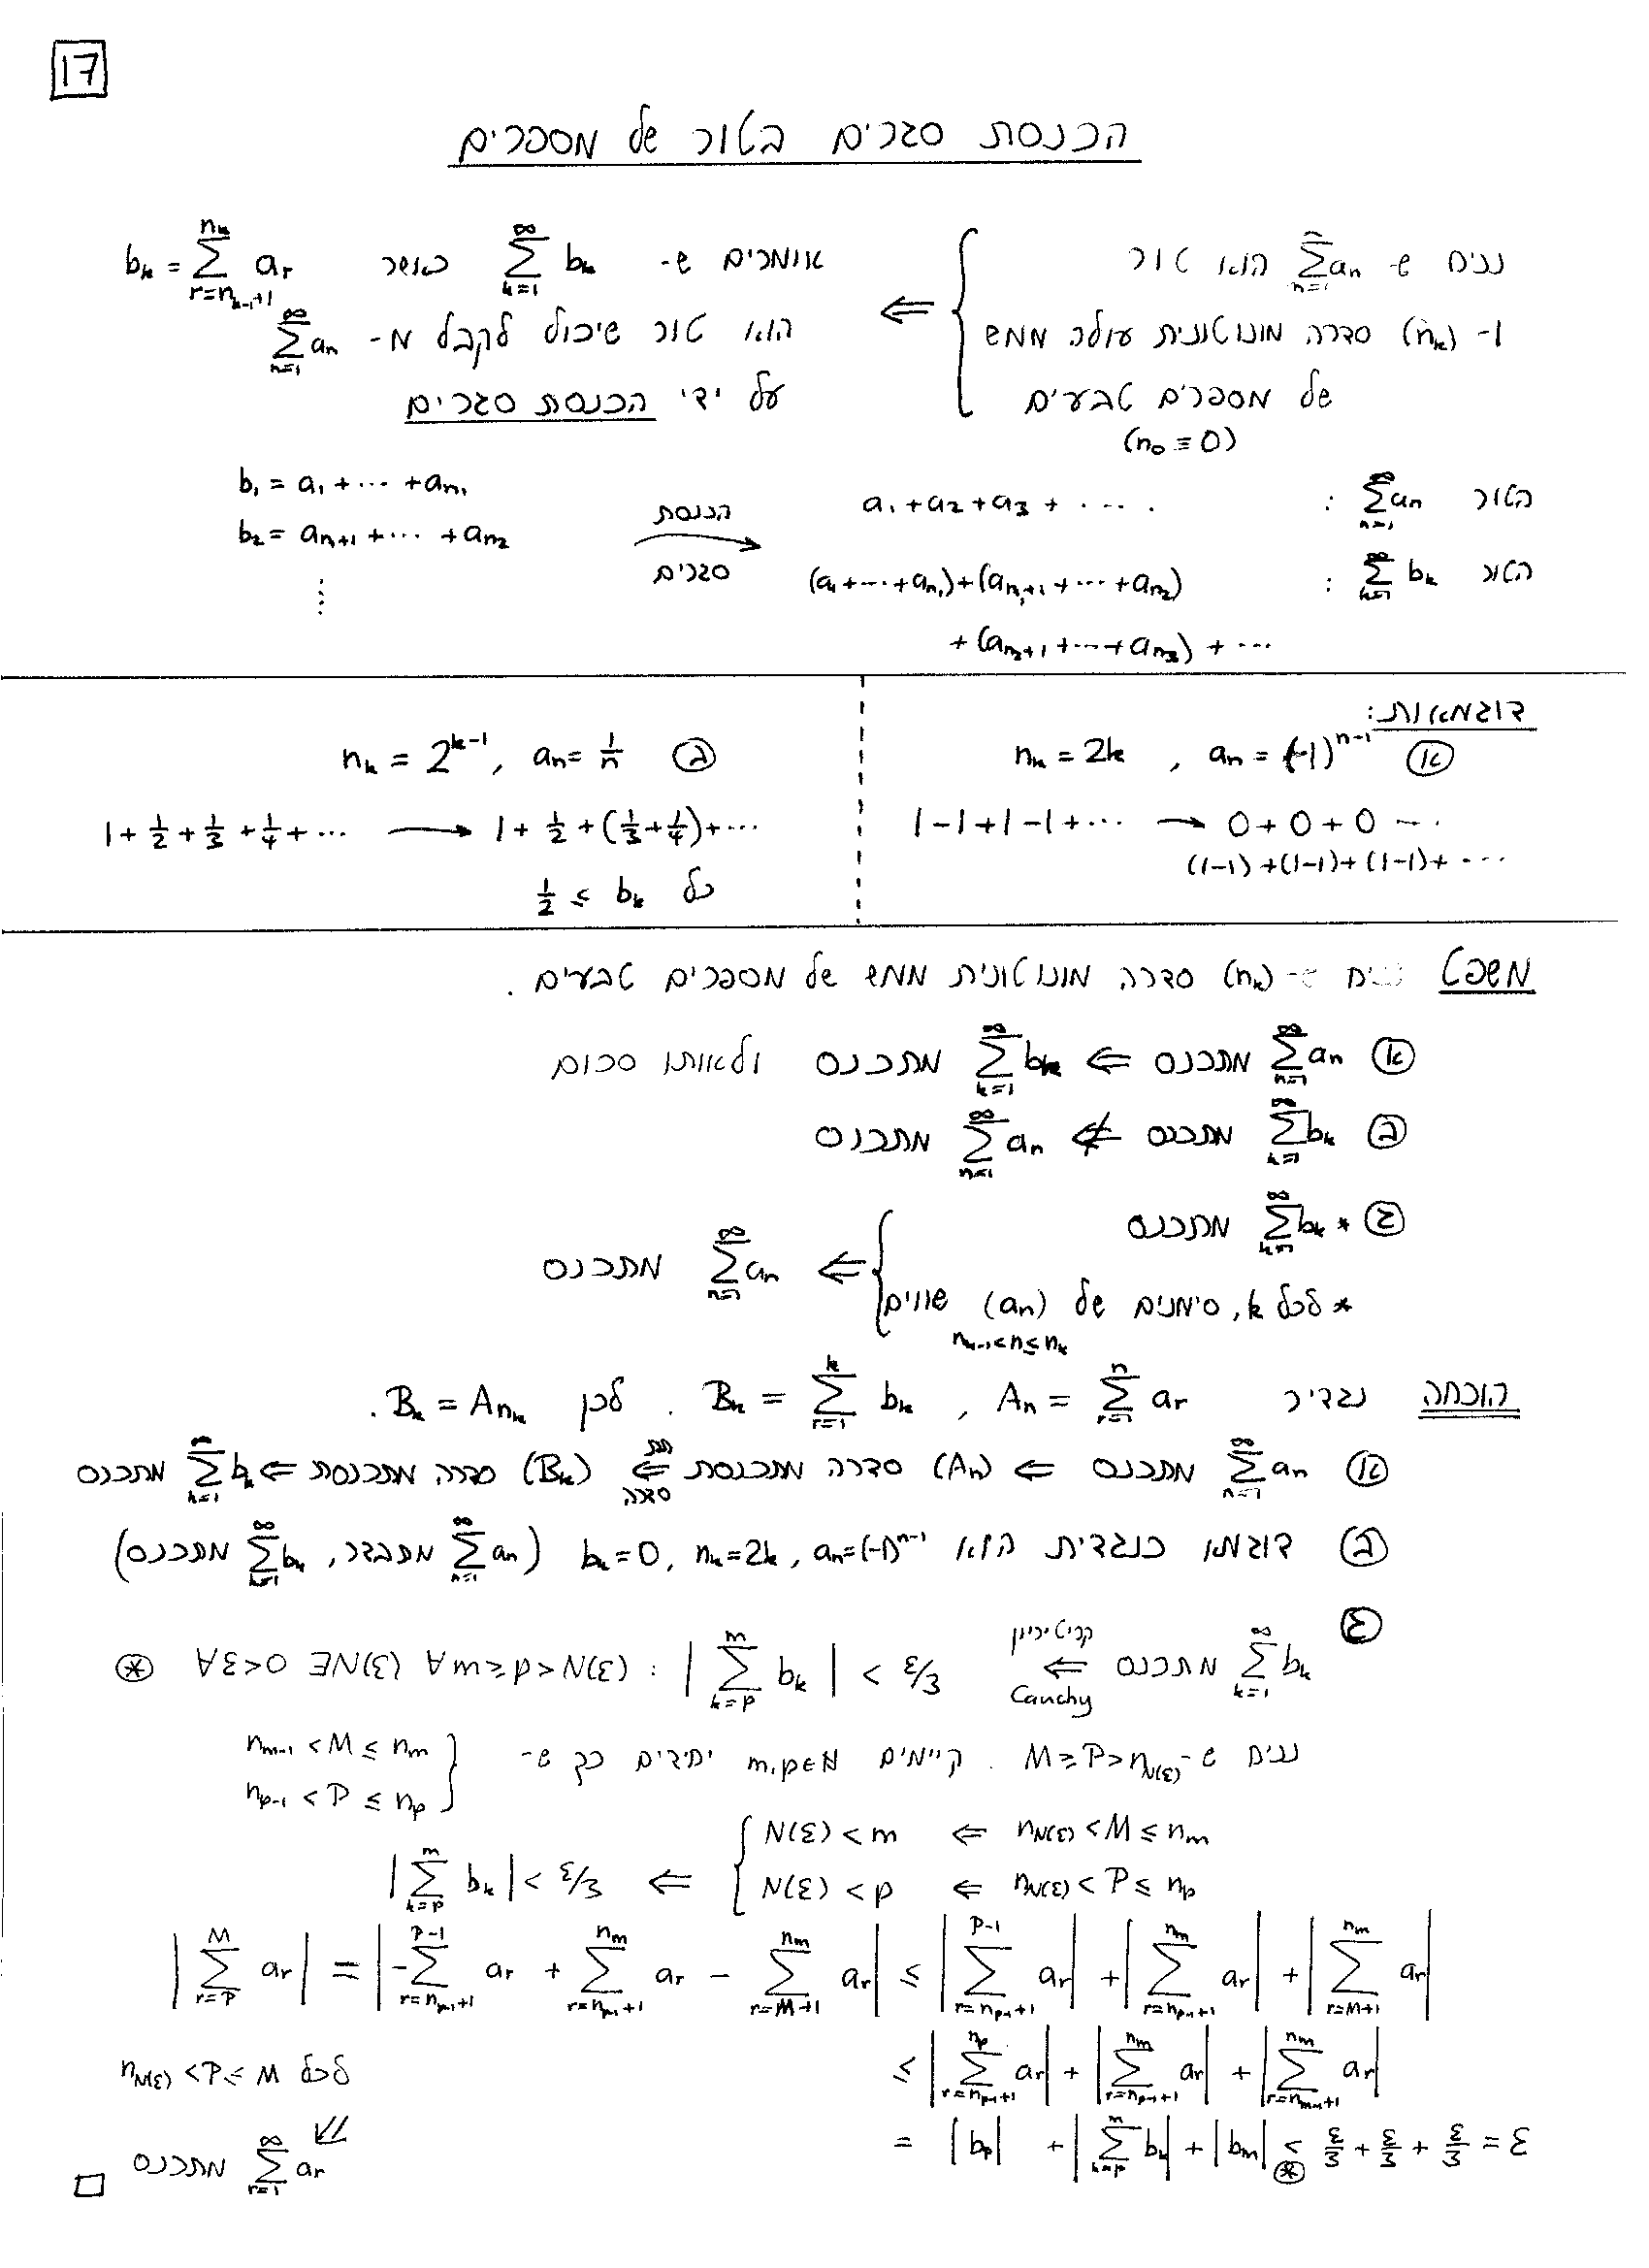 17
הכנסת סגרים בטור של מספרים
נניח ש- $\sum_{n=1}^{\infty} a_n$ הוא טור
ו- $(n_k)$ סדרה מונוטונית עולה ממש
של מספרים טבעים
$(n_0 \equiv 0)$
⇐
אומרים ש- $\sum_{k=1}^{\infty} b_k$ כאשר $b_k = \sum_{r=n_{k-1}+1}^{n_k} a_r$
הוא טור שיכול לקבל מ- $\sum_{n=1}^{\infty} a_n$
על ידי הכנסת סגרים
הטור $\sum_{n=1}^{\infty} a_n$ : $a_1 + a_2 + a_3 + \cdots$
הטור $\sum_{k=1}^{\infty} b_k$ : $(a_1 + \cdots + a_{n_1}) + (a_{n_1+1} + \cdots + a_{n_2})$
$+ (a_{n_2+1} + \cdots + a_{n_3}) + \cdots$
הכנסת
→
סגרים
$b_1 = a_1 + \cdots + a_{n_1}$
$b_2 = a_{n_1+1} + \cdots + a_{n_2}$
⋮
דוגמאות:
(א) $a_n = (-1)^{n-1}$ , $n_k = 2k$
$1-1+1-1+\cdots \to 0+0+0 \cdots$
$(1-1)+(1-1)+(1-1)+\cdots$
(ב) $a_n = \frac{1}{n}$ , $n_k = 2^{k-1}$
$1+\frac{1}{2}+\frac{1}{3}+\frac{1}{4}+\cdots \to 1+\frac{1}{2}+(\frac{1}{3}+\frac{1}{4})+\cdots$
כל $\frac{1}{2} \le b_k$
משפט נניח ש- $(n_k)$ סדרה מונוטונית ממש של מספרים טבעים.
(א) $\sum_{n=1}^{\infty} a_n$ מתכנס ⇐ $\sum_{k=1}^{\infty} b_k$ מתכנס ולאותו סכום
(ב) $\sum_{k=1}^{\infty} b_k$ מתכנס ⇍ $\sum_{n=1}^{\infty} a_n$ מתכנס
(ג) * $\sum_{k=1}^{\infty} b_k$ מתכנס
* לכל k, סימנים של $(a_n)_{n_{k-1}<n\le n_k}$ שווים
⇐ $\sum_{n=1}^{\infty} a_n$ מתכנס
הוכחה נגדיר $A_n = \sum_{r=1}^{n} a_r$ , $B_k = \sum_{r=1}^{k} b_k$ . לכן $B_k = A_{n_k}$ .
(א) $\sum_{n=1}^{\infty} a_n$ מתכנס ⇐ $(A_n)$ סדרה מתכנסת ⇐ (תת סדרה) $(B_k)$ סדרה מתכנסת ⇐ $\sum_{k=1}^{\infty} b_k$ מתכנס
(ב) דוגמא כנגדית הוא $a_n=(-1)^{n-1}$ , $n_k=2k$ , $b_k=0$ ($\sum_{n=1}^{\infty} a_n$ מתבדר, $\sum_{k=1}^{\infty} b_k$ מתכנס)
(ג) $\sum_{k=1}^{\infty} b_k$ מתכנס ⇐ (קריטריון Cauchy) $\forall \varepsilon>0\ \exists N(\varepsilon)\ \forall m \ge p > N(\varepsilon) : \left|\sum_{k=p}^{m} b_k\right| < \varepsilon/3$ ⊛
נניח ש- $M \ge P > n_{N(\varepsilon)}$ . קיימים $m,p \in \mathbb{N}$ יחידים כך ש- $n_{m-1} < M \le n_m$
$n_{p-1} < P \le n_p$
$n_{N(\varepsilon)} < M \le n_m$ ⇐ $N(\varepsilon) < m$
$n_{N(\varepsilon)} < P \le n_p$ ⇐ $N(\varepsilon) < p$ ⇐ $\left|\sum_{k=p}^{m} b_k\right| < \varepsilon/3$
$\left|\sum_{r=P}^{M} a_r\right| = \left|-\sum_{r=n_{p-1}+1}^{P-1} a_r + \sum_{r=n_{p-1}+1}^{n_m} a_r - \sum_{r=M+1}^{n_m} a_r\right| \le \left|\sum_{r=n_{p-1}+1}^{P-1} a_r\right| + \left|\sum_{r=n_{p-1}+1}^{n_m} a_r\right| + \left|\sum_{r=M+1}^{n_m} a_r\right|$
$\le \left|\sum_{r=n_{p-1}+1}^{n_p} a_r\right| + \left|\sum_{r=n_{p-1}+1}^{n_m} a_r\right| + \left|\sum_{r=n_{m-1}+1}^{n_m} a_r\right|$
$= |b_p| + \left|\sum_{k=p}^{m} b_k\right| + |b_m| <_{⊛} \frac{\varepsilon}{3} + \frac{\varepsilon}{3} + \frac{\varepsilon}{3} = \varepsilon$
לכל $n_{N(\varepsilon)} < P \le M$
⇙
$\sum_{r=1}^{\infty} a_r$ מתכנס □